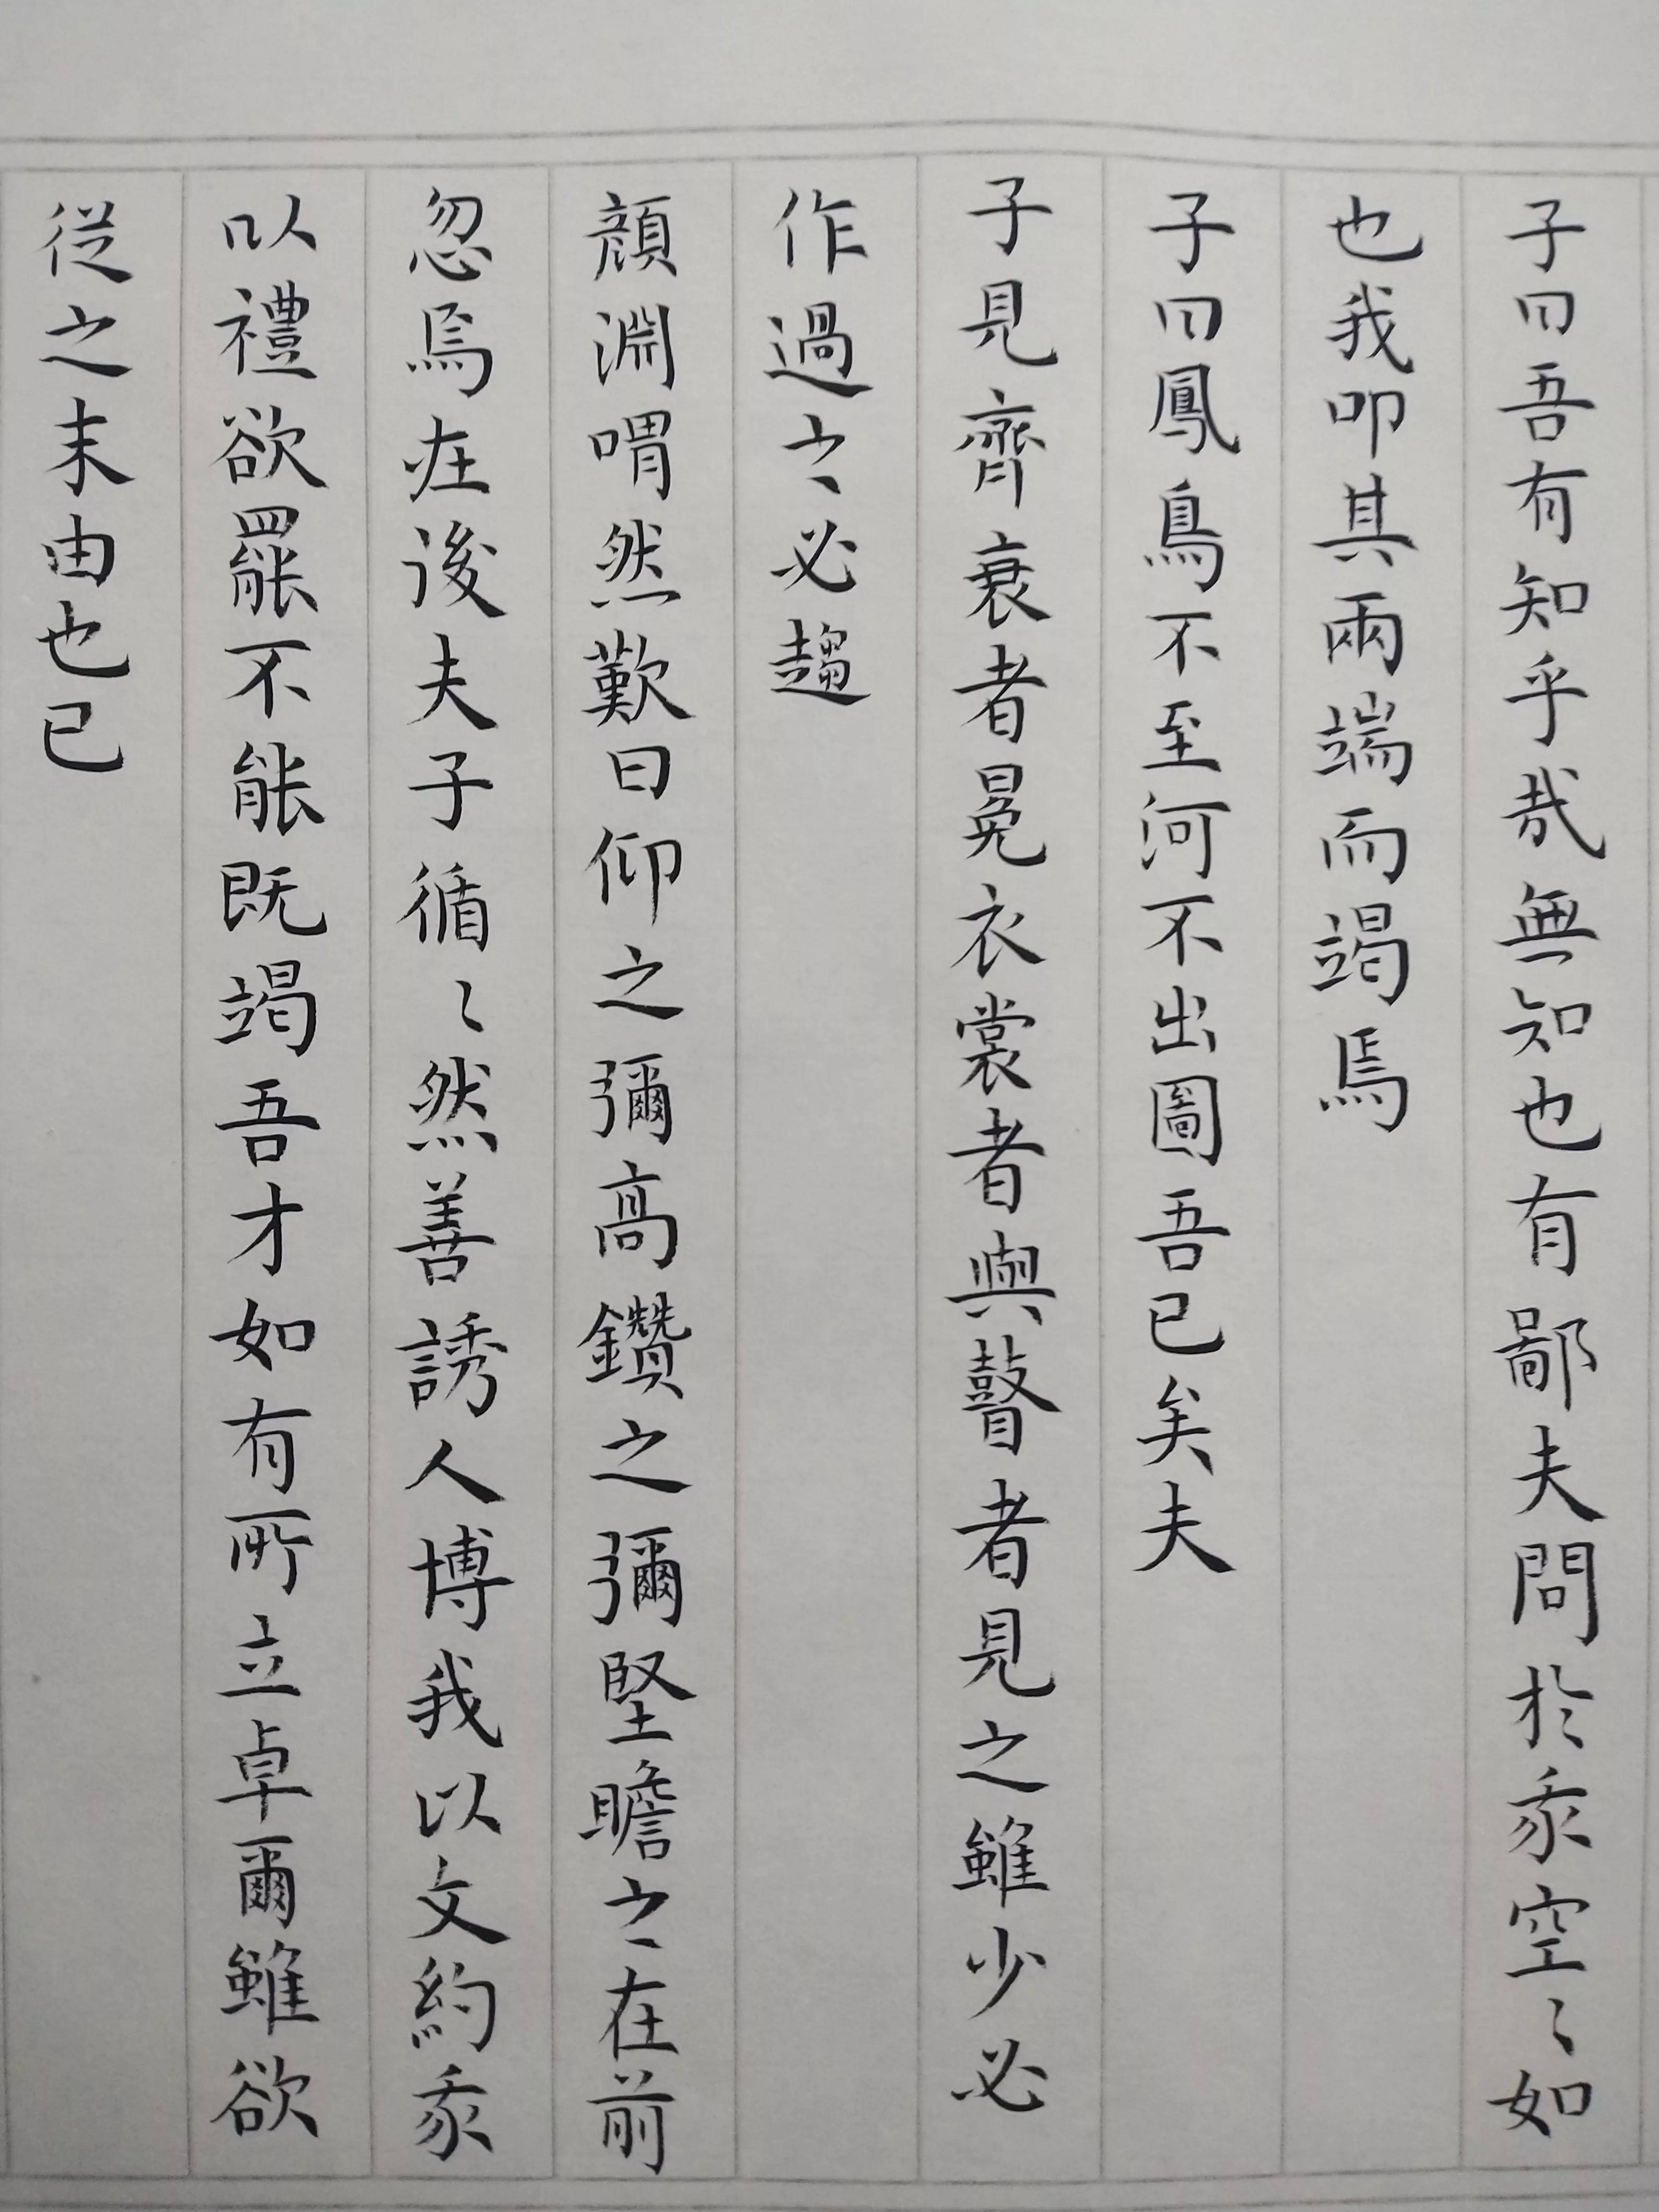 子曰吾有知乎哉無知也有鄙夫問於我空〻如
也我叩其兩端而竭焉
子曰鳳鳥不至河不出圖吾已矣夫
子見齊衰者冕衣裳者與瞽者見之雖少必
作過之必趨
顏淵喟然歎曰仰之彌高鑽之彌堅瞻之在前
忽焉在後夫子循〻然善誘人博我以文約我
以禮欲罷不能既竭吾才如有所立卓爾雖欲
從之末由也已